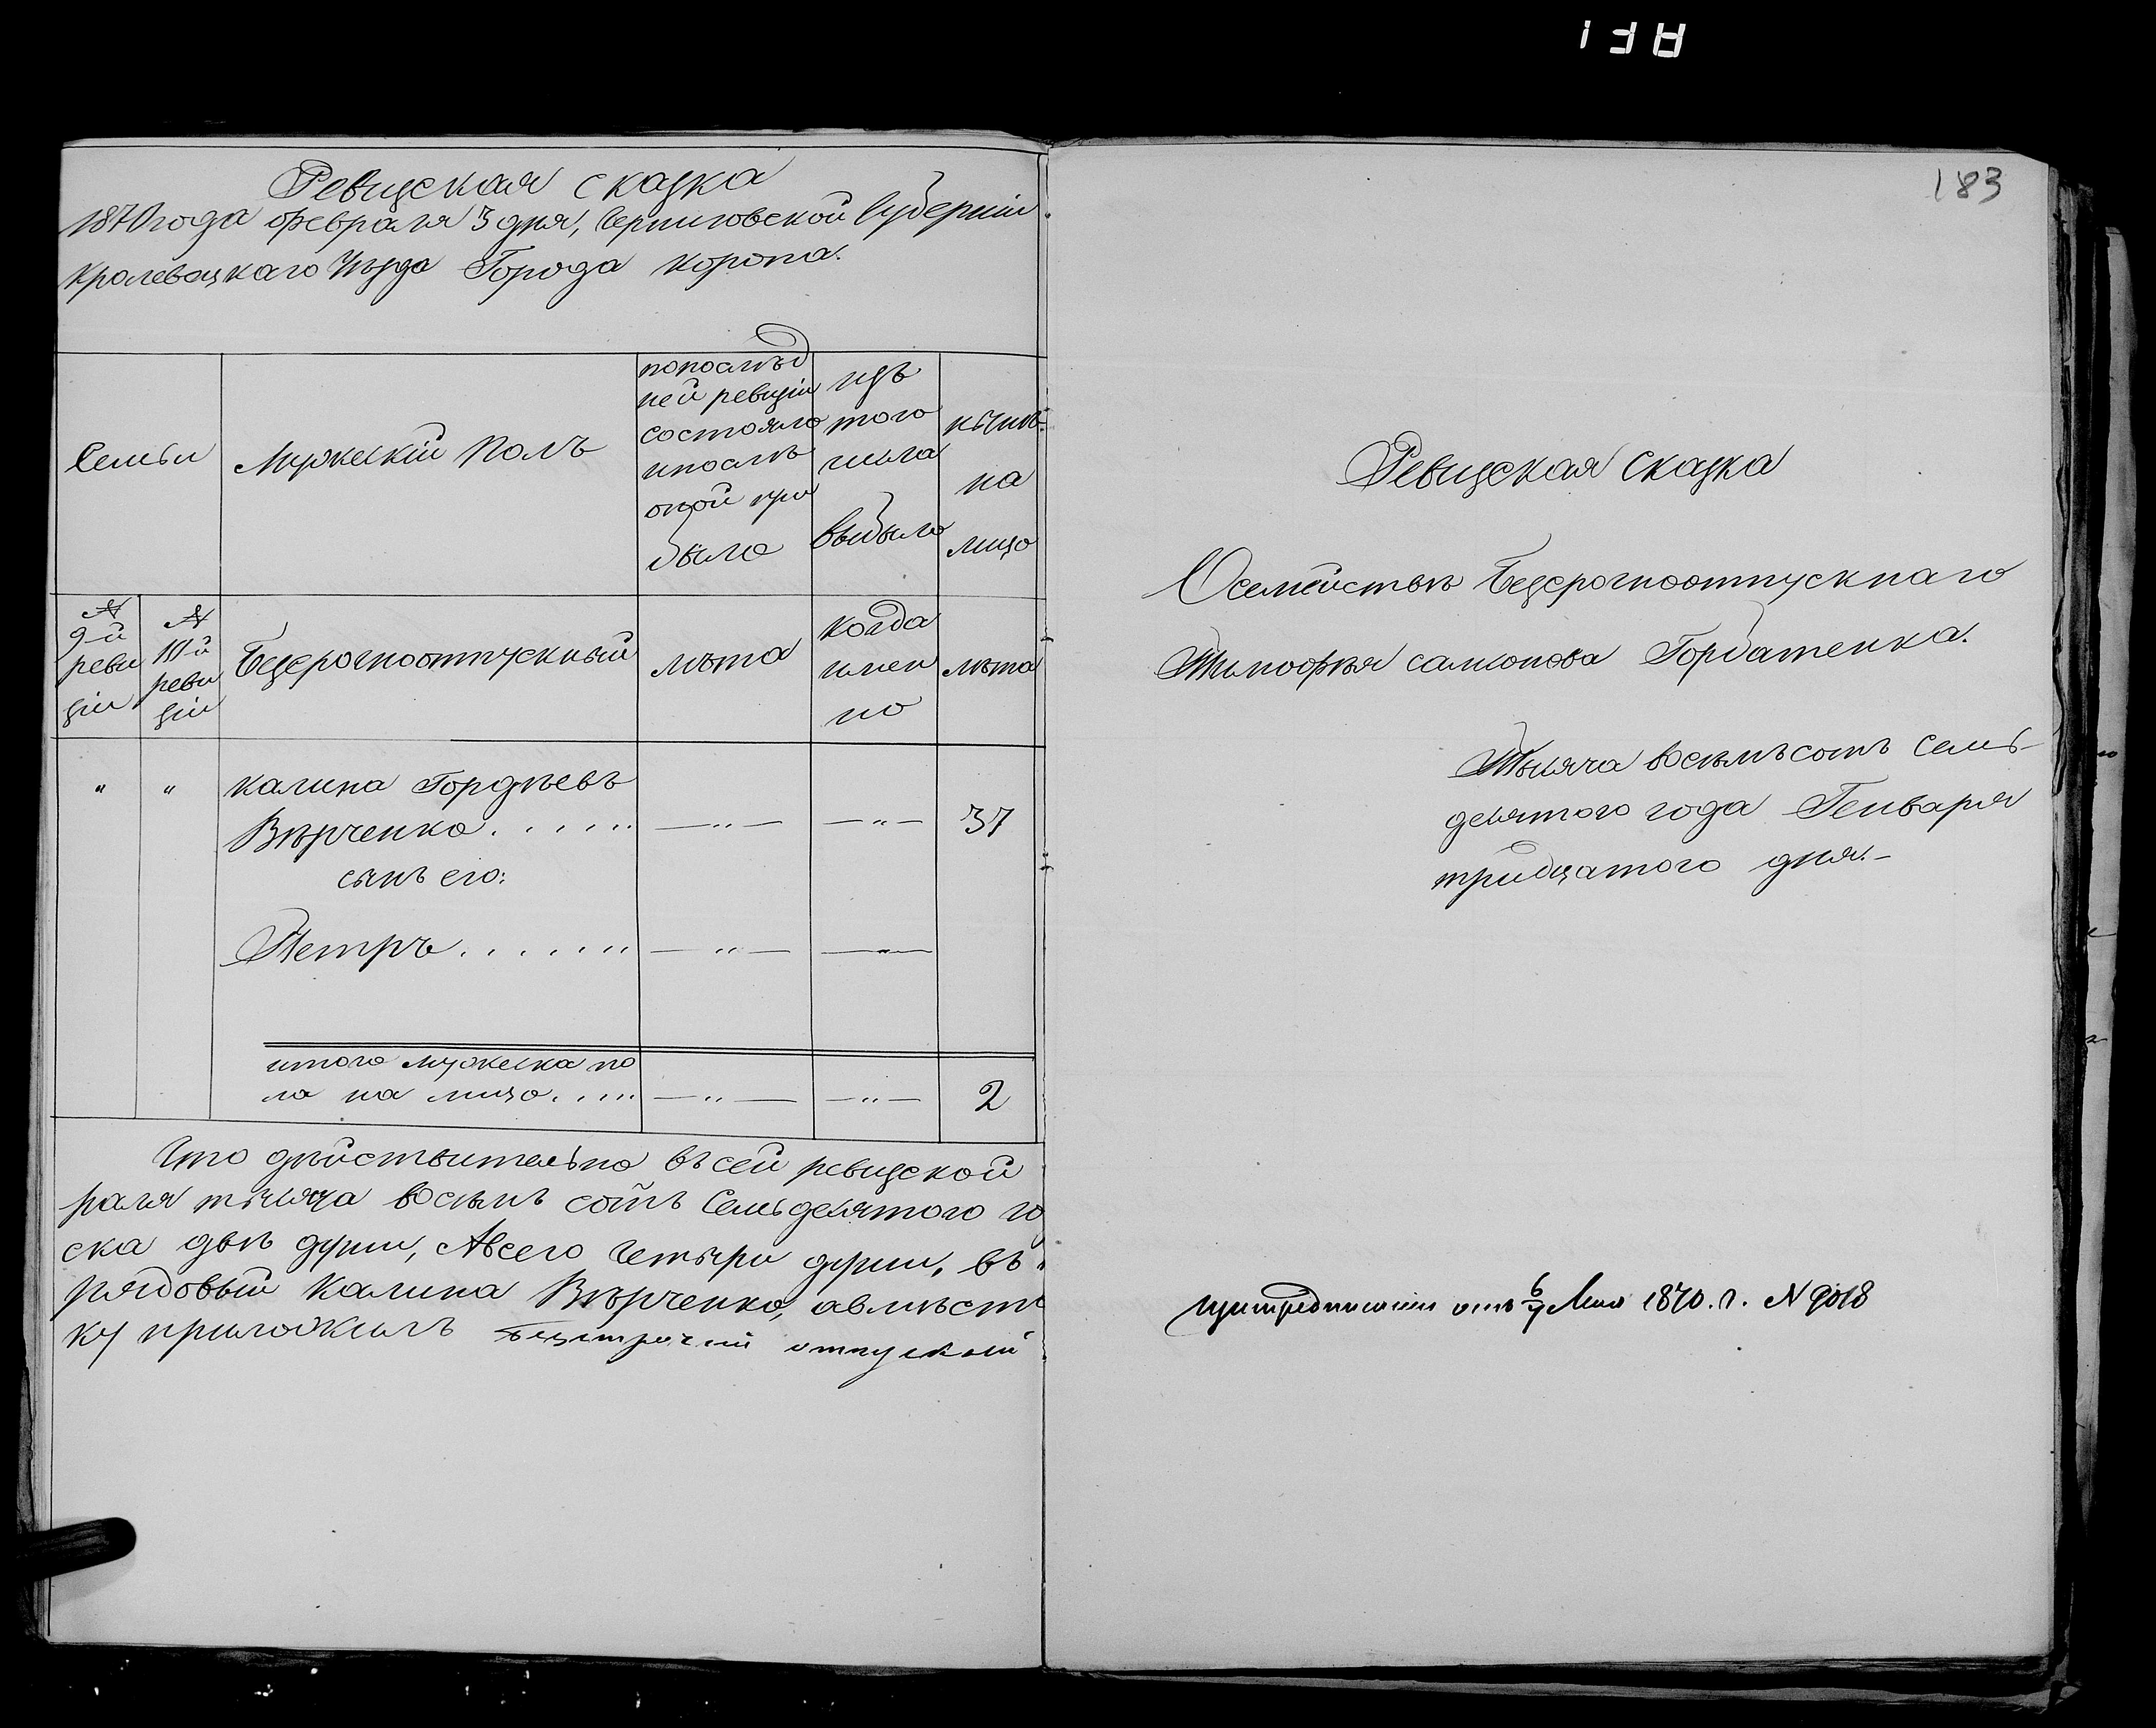 Ревизская сказка
1870 года февраля 3 дня, Черниговской Губерніи
Кролевецкаго Уѣзда Города Коропа.
Семьи
Мужескій Полъ
попослѣд
ней ревизіи
состояло
ипослѣ
оной при
было
изъ
того
числа
выбыло
нынѣ
на
лицо
№
9-й
реви
зіи
№
10й
реви
зіи
Безсрочноотпускный
лѣта
когда
имен
но
лѣта
" " Калина Гордѣевъ
Вѣрченко . . . . . . —"— —"— 37
сынъ его:
Петръ . . . . . . . —"— —"—
итого мужеска по
ла на лицо . . . . . —"— —"— 2
Что дѣйствительно въ сей ревизской
раля тысяча восемь сотъ Семьдесятого го
ска двѣ души, Авсего Четыри души, въ
рядовый Калина Вѣрченко, авмѣсто
ку приложилъ отпускный
183
Ревизская Сказка
Осемействѣ Безсрочноотпускнаго
Тимофѣя самсонова Горбатенка.
Тысяча восемьсотъ Семь-
десятого года Генваря
тридцатого дня.-
припредписаніи отъ 6/7 Мая 1870. г. № 9018